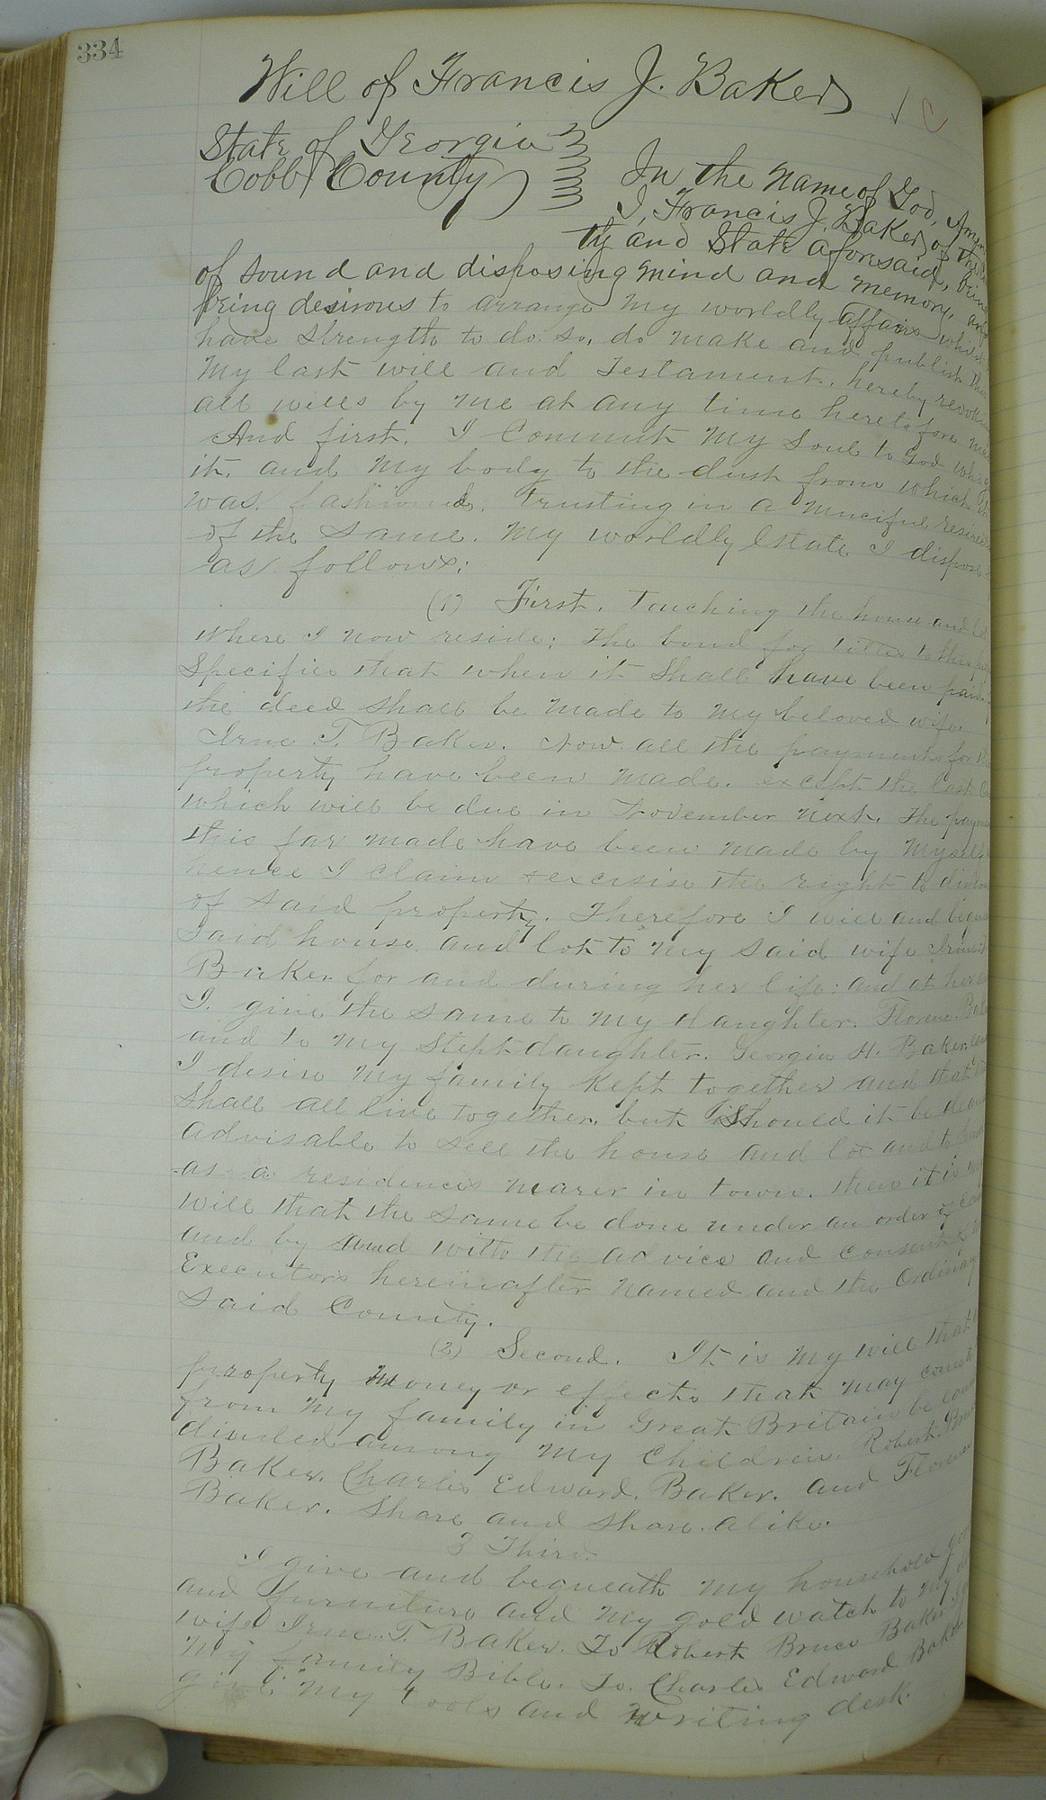 334
Will of Francis J. Baker
State of Georgia
Cobb County
In the name of God, Amen
I, Francis J. Baker of the
ty and State aforesaid, being
of sound and disposing mind and memory, and
being desirous to arrange my worldly affairs whilst
have strength to do so, do make and publish this
my last will and Testament, hereby revoking
all wills by me at any time heretofore made
And first. I commit my soul to God who gave
it, and my body to the dust from which it
was fashioned. Trusting in a merciful
of the same. My worldly Estate I dispose
as follows:
(1) First. Touching the house and lot
where I now reside; The bond for titles to
Specifies that when it shall have been paid
the deed shall be made to my beloved wife
Irene T. Baker. Now all the payments for
property have been made, except the last
which will be due in November next. The paym
this far made have been made by myself
hence I claim & exercise the right to
of said property. Therefore I will and beque
said house and lot to my said wife Irene
Baker for and during her life: and at her
I give the same to my daughter Florence
and to my Stept-daughter. Georgia H. Baker
I desire my family kept together and that
shall all live together, but should it be
advisable to sell the house and lot and to
as a residence nearer in town, then it is my
will that the same be done under an order of
and by and with the advice and consent of
Executors hereinafter named and the Ordinary
said County.
(2) Second. It is my will that
property money or effects that may come
from my family in Great Britain be
divided among my children Robert Bruce
Baker, Charles Edward Baker, and Florence
Baker. Share and share alike.
3 Third.
I give and bequeath my household
and furniture and my gold watch to my
wife Irene T. Baker. To Robert Bruce Baker
my family Bible. To Charles Edward Baker
give my tools and writing desk.